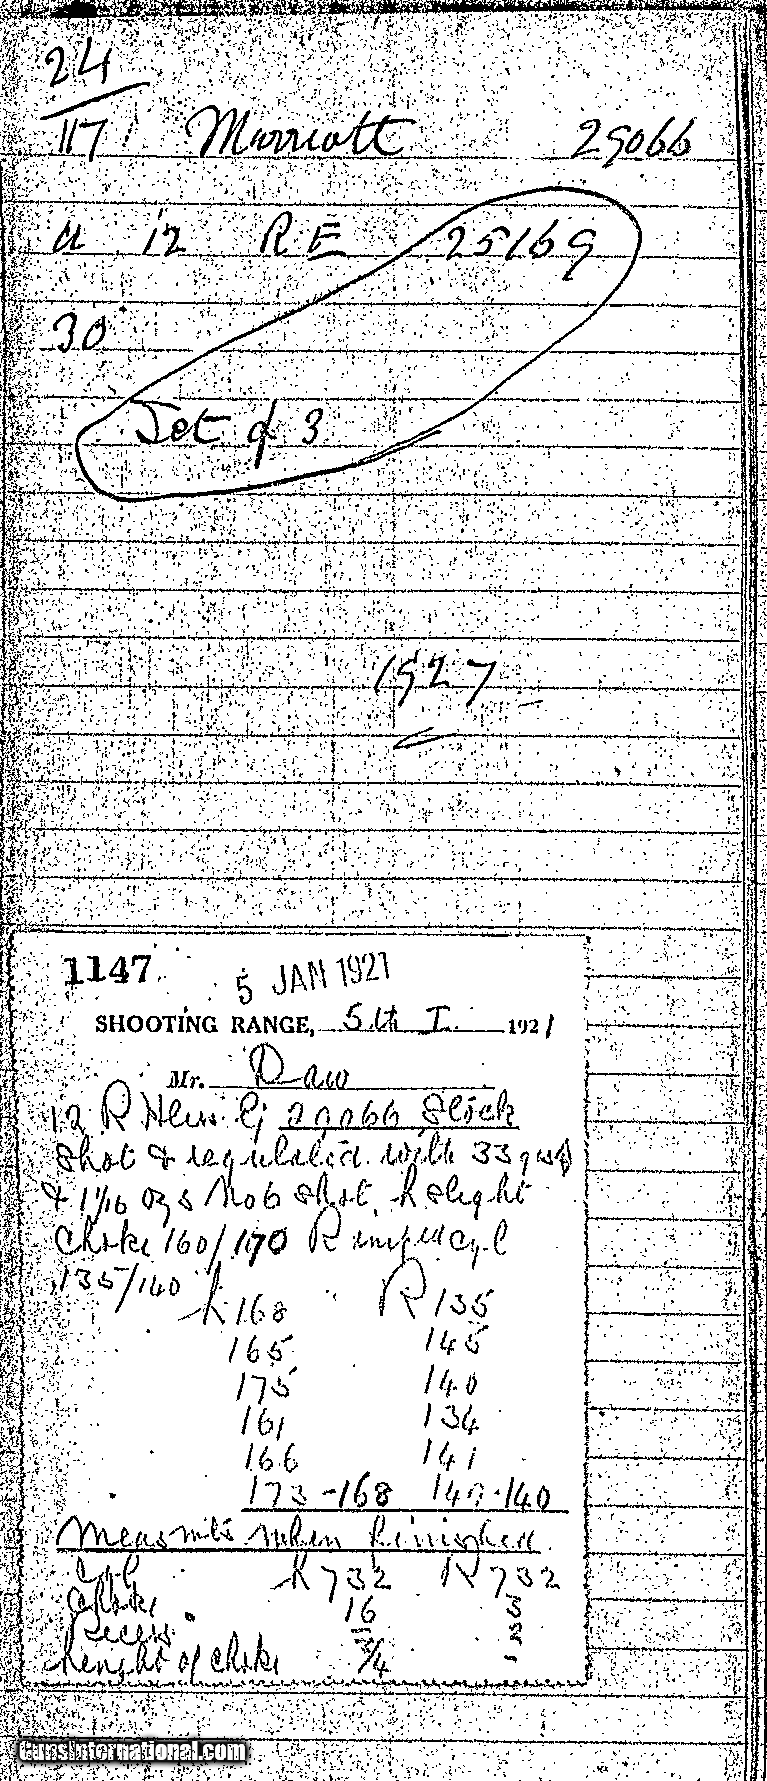 24
117 Marriott 29066
12 RE 25169
30
Set of 3
1927
1147
5 JAN 1921
SHOOTING RANGE, 5th I 1921
Mr. Daw
12 R 29066 Stock
Shot & regulated with 33
& 1 1/16 ozs No 6 shot, L slight
choke 160/170 R cyl
135/140
L 168 R 135
165 145
175 140
161 134
166 141
173 - 168 140
when finished
Cyl L 732 R 732
Choke 16 3
Recess
height of choke 3/4
gunsinternational.com